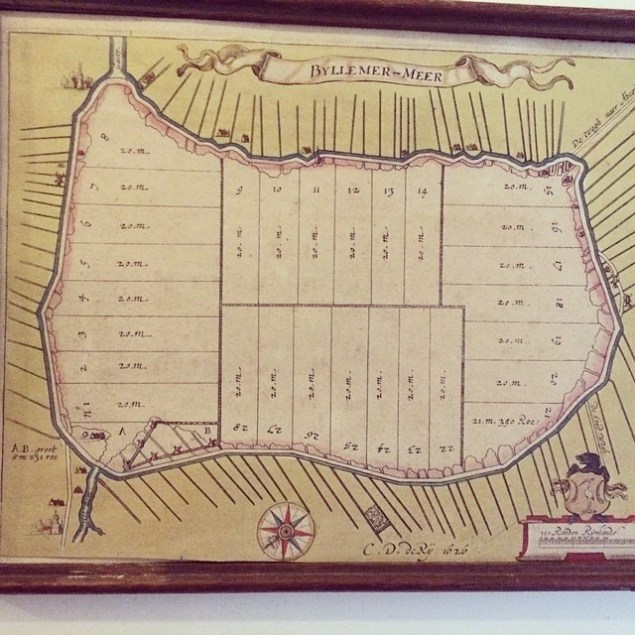 BYLLEMER-MEER
De wegh naer
8 20.m.
7 20.m.
6 20.m.
5 20.m.
4 20.m.
3 20.m.
2 20.m.
N.1 20.m.
9 10 11 12 13 14
20.m. 20.m. 20.m. 20.m. 20.m. 20.m.
20.m. 15
20.m. 16
20.m. 17
20.m. 18
20.m. 19
20.m. 20
21.m. 390 Roe 21
20.m. 20.m. 20.m. 20.m. 20.m. 20.m. 20.m.
28 27 26 25 24 23 22
A B
A.B. groot
C. D. de Rÿ 1626
100 Roeden Rynlands